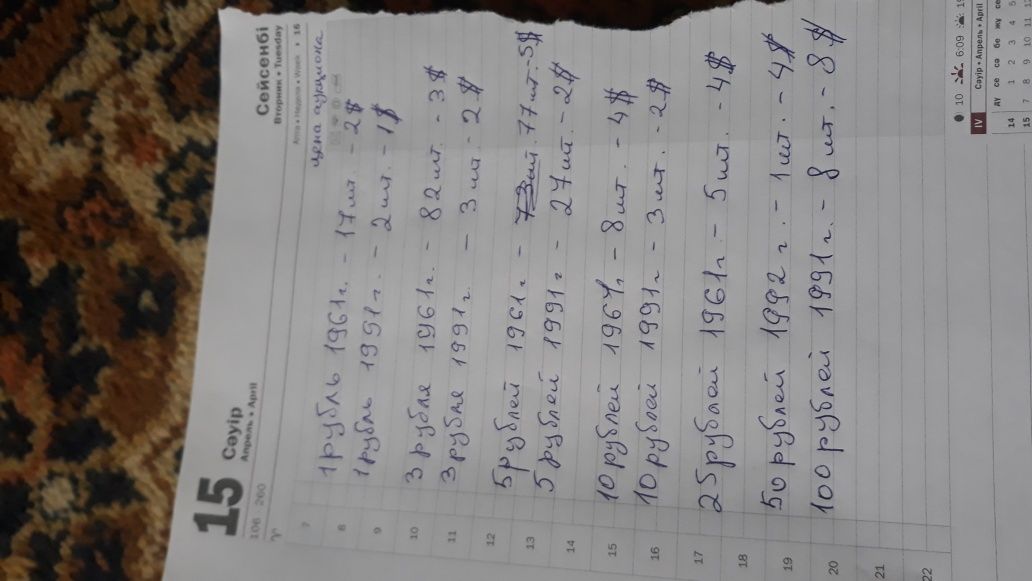 15
Сәуір
Апрель • April
106 260
Сейсенбі
Вторник • Tuesday
Апта • Неделя • Week • 16
цена аукциона
7
8 1 рубль 1961г. - 17шт. - 2$
9 1 рубль 1991г. - 2шт. - 1$
10 3 рубля 1961г. - 82шт. - 3$
11 3 рубля 1991г. - 3шт. - 2$
12
13 5 рублей 1961г - 73шт. 77шт. - 5$
14 5 рублей 1991г - 27шт. - 2$
15 10 рублей 1961г - 8шт. - 4$
16 10 рублей 1991г - 3шт. - 2$
17 25 рублей 1961г. - 5шт. - 4$
18
19 50 рублей 1992г. - 1шт. - 4$
20 100 рублей 1991г. - 8шт. - 8$
21
22
10 6:09
IV Сәуір • Апрель • April
ду се сә бе жу
14 1 2 3 4 5
15 7 8 9 10 11